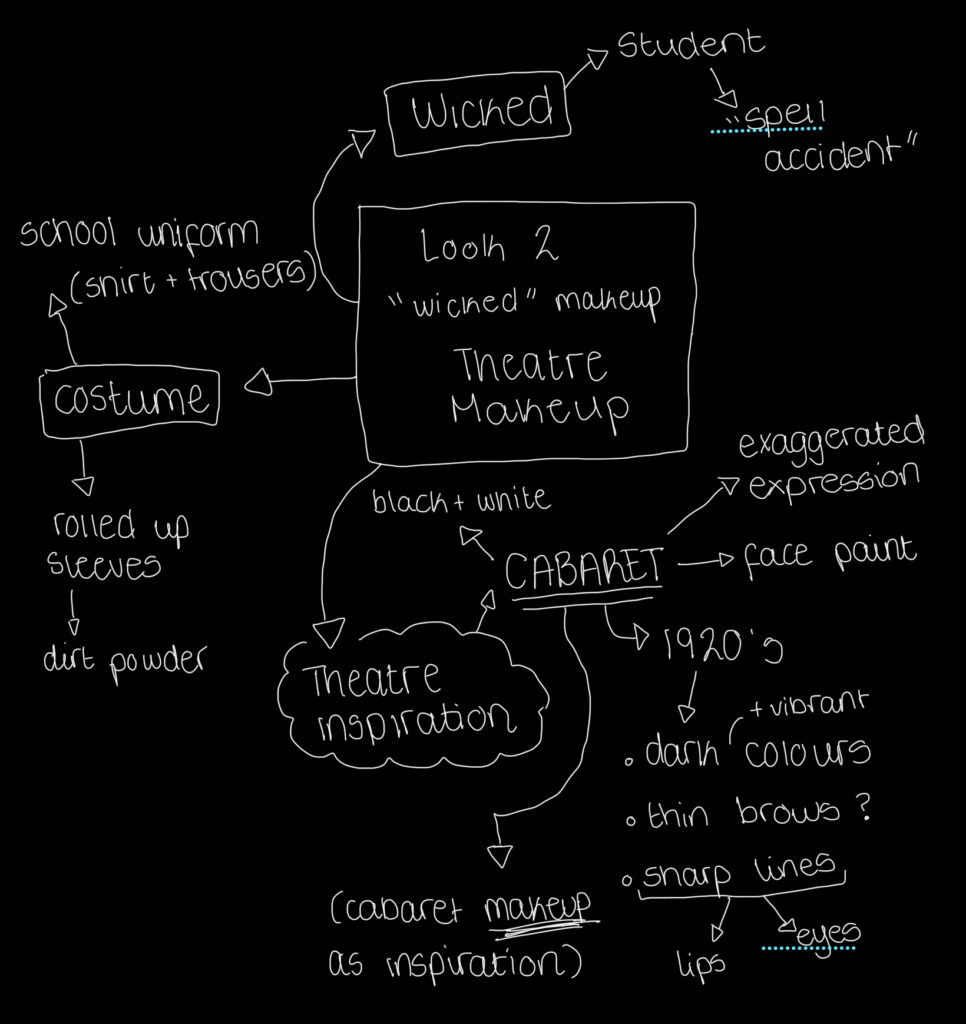 Student
Wicked
"spell
accident"
school uniform
(shirt + trousers)
Look 2
"wicked" makeup
Theatre
Makeup
costume
rolled up
sleeves
dirt powder
exaggerated
expression
black + white
CABARET
face paint
1920's
Theatre
inspiration
+ vibrant
• dark colours
• thin brows ?
• sharp lines
lips
eyes
(cabaret makeup
as inspiration)